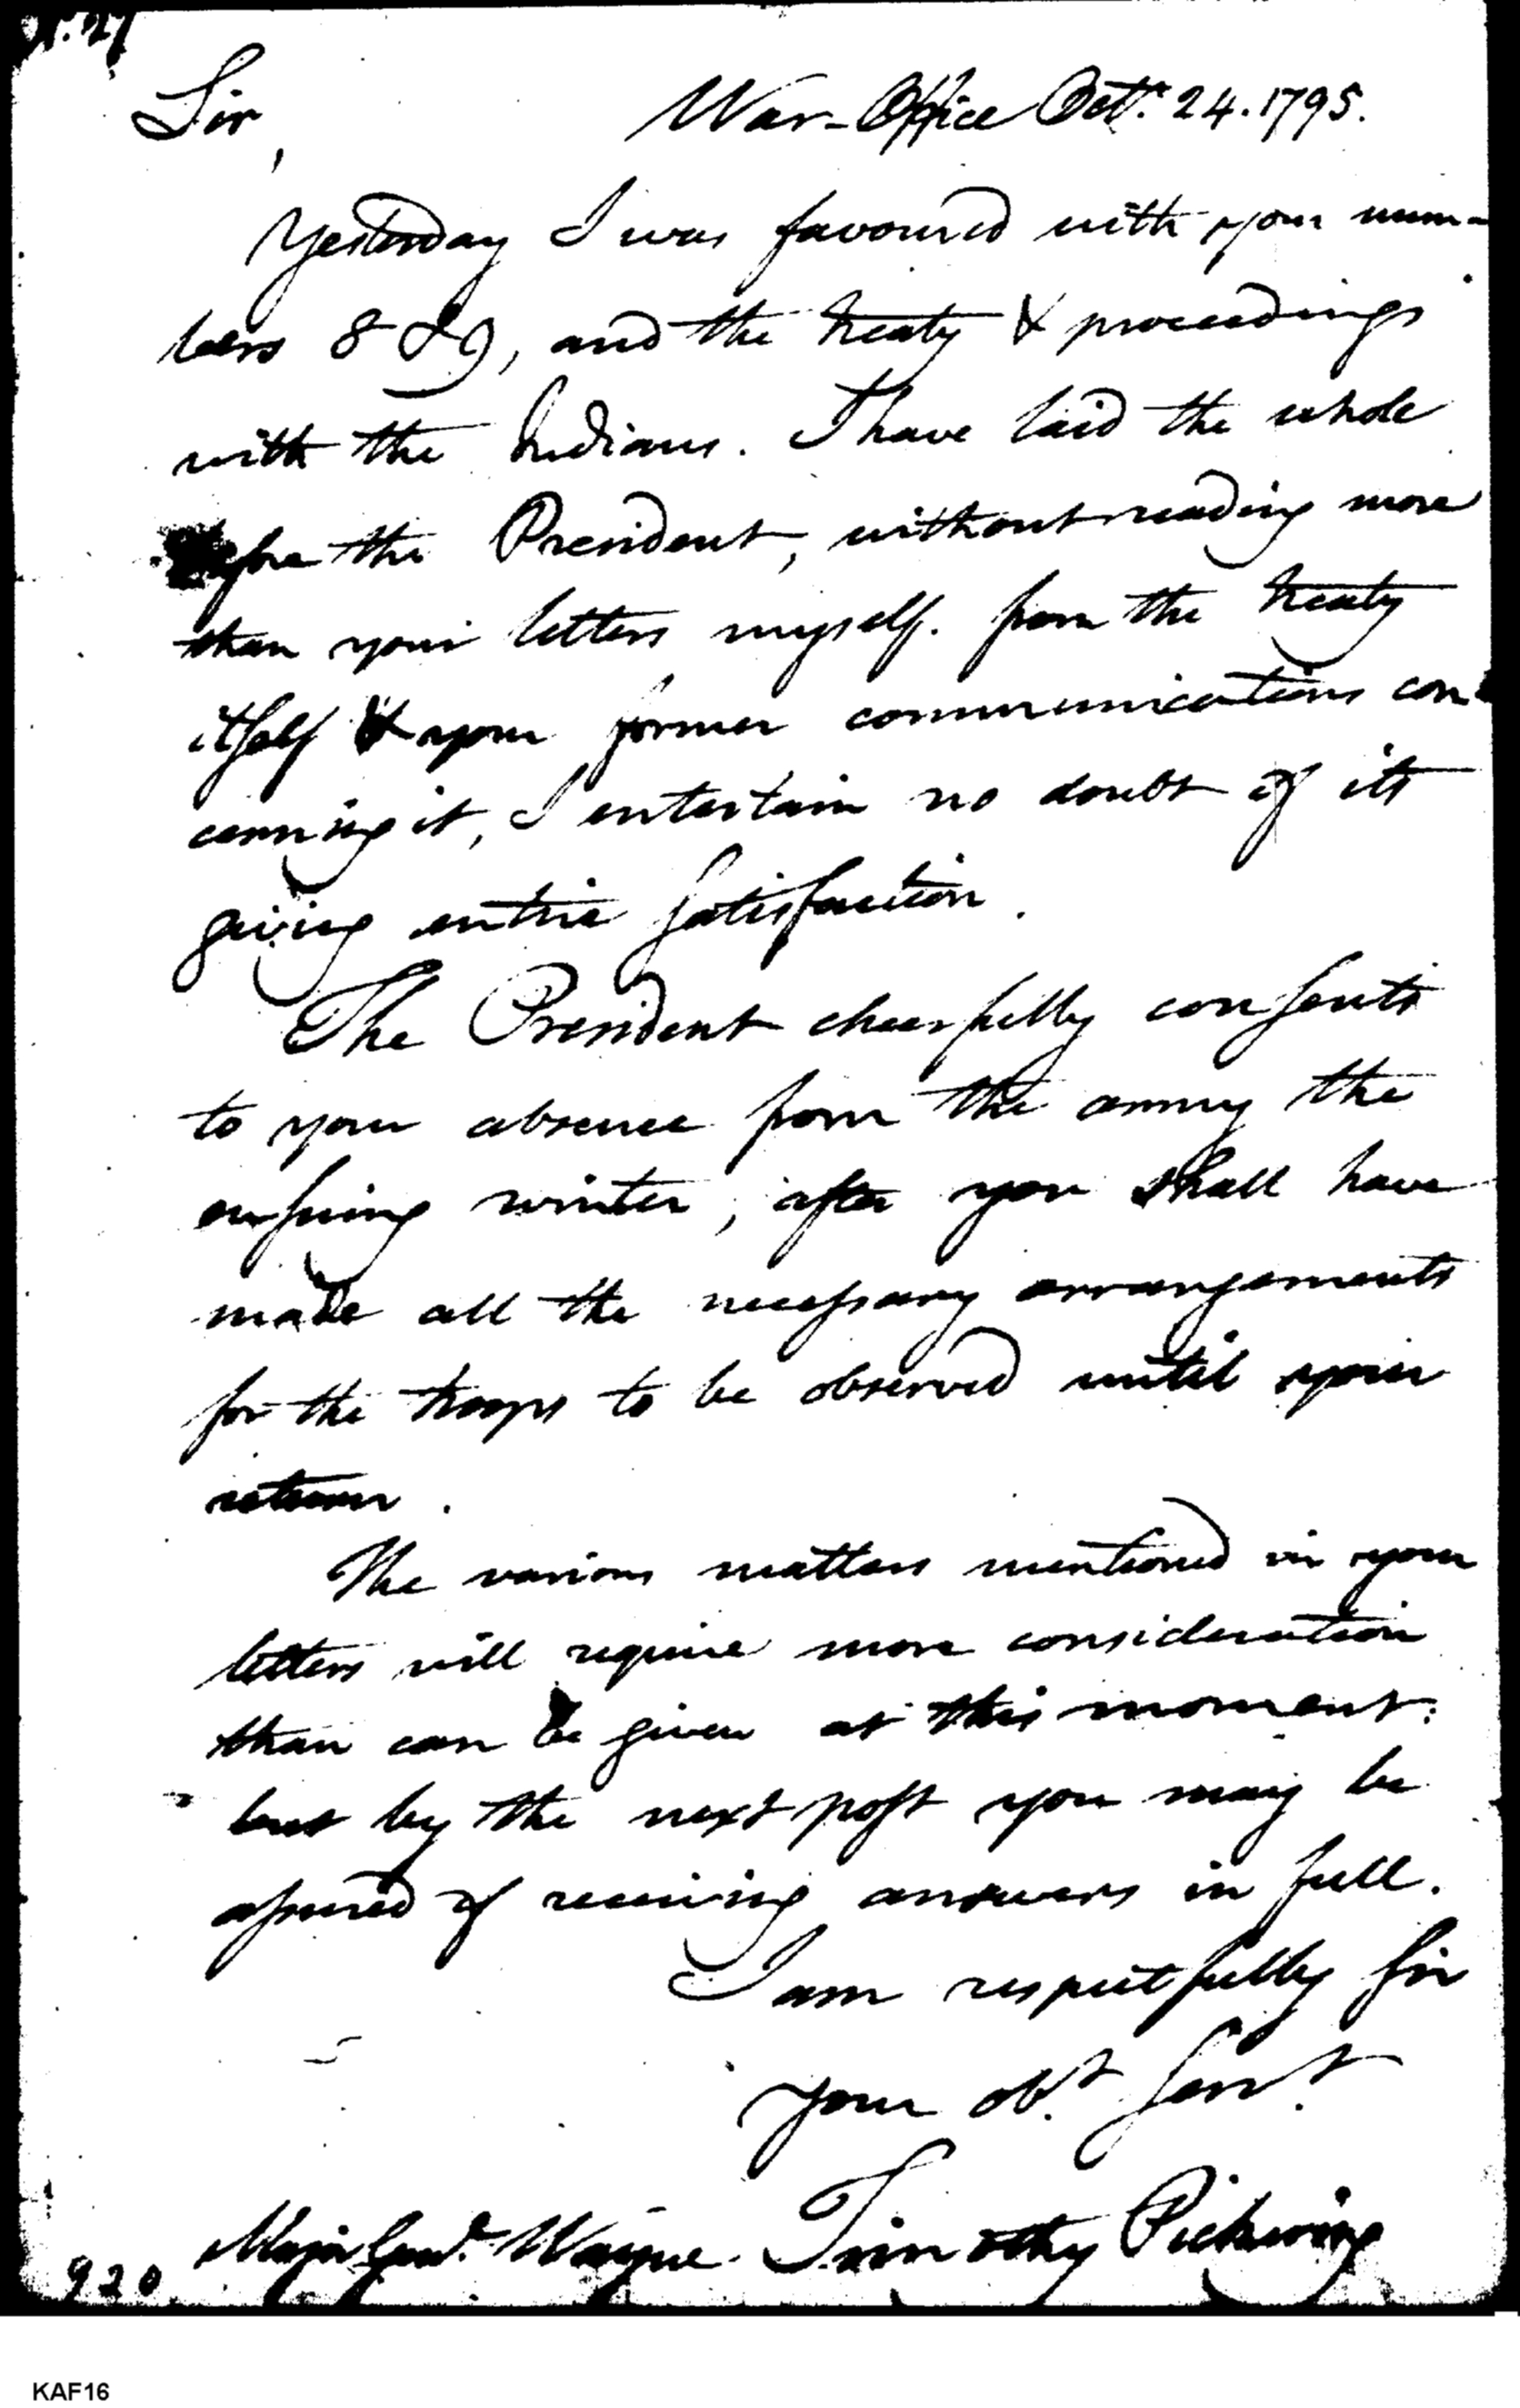 N. 27
Sir,
War-Office Octr. 24. 1795.
Yesterday I was favoured with your num-
bers 8 & 9, and the treaty & proceedings
with the Indians. I have laid the whole
before the President, without reading more
than your letters myself. from the treaty
itself & your former communications con-
cerning it, I entertain no doubt of its
giving entire satisfaction.
The President cheerfully consents
to your absence from the army the
ensuing winter, after you shall have
made all the necessary arrangements
for the troops to be observed until your
return.
The various matters mentioned in your
letters will require more consideration
than can be given at this moment:
but by the next post you may be
assured of receiving answers in full.
I am respectfully sir
your obt. servt.
Major Genl. Wayne. Timothy Pickering
920
KAF16